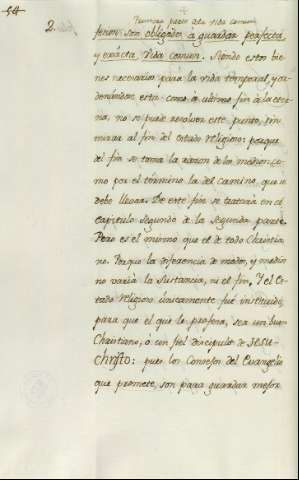 54
2.
feron, son obligados à guardar perfecta,
y exácta vida comun. Siendo estos bie-
nes necesarios para la vida temporal, y or-
denandose esta como à ultimo fin à la eter-
na, no se puede resolver este punto, sin
mirar al fin del estado Religioso: porque
del fin se toma la razon de los medios; co-
mo por el término la del camino, que se
debe llevar. De este fin se tratará en el
Capitulo Segundo de la Segunda parte.
Pero es el mismo que el de todo Christia-
no. Porque la diferencia de modos, y medios
no varía la Sustancia, ni el fin. Y el Es-
tado Religioso Santamente fué instituido,
para que el que le profesa, sea un buen
Christiano, ó un fiel discipulo de JESU-
Christo: pues los Consejos del Evangelio
que promete, son para guardar mejor